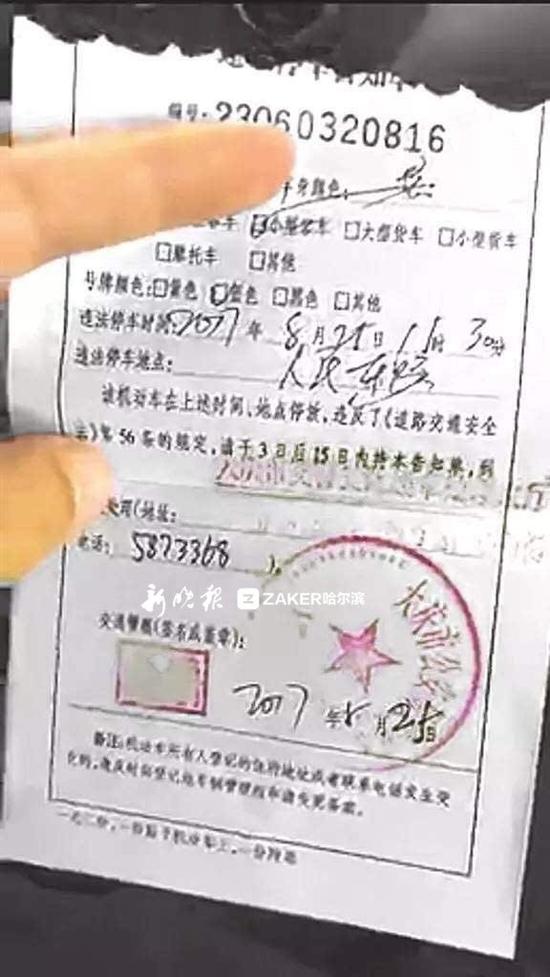 违法停车告知单
编号:23060320816
车身颜色:
客车 ☑小型客车 □大型货车 □小型货车
□摩托车 □其他
号牌颜色:□黄色 ☑蓝色 □黑色 □其他
违法停车时间:2017年8月25日11时30分
违法停车地点:人民东路
该机动车在上述时间、地点停放,违反了《道路交通安全
法》第56条的规定,请于3日后15日内持本告知单,到
处理(地址:
电话:5873368 )。
新晚报 ZAKER哈尔滨
大庆市公安
交通警察(签名或盖章):
2017年8月25日
备注:机动车所有人登记的住所地址或者联系电话发生变
化的,请及时向登记地车辆管理所申请变更备案。
一式二份,一份贴于机动车上,一份附卷